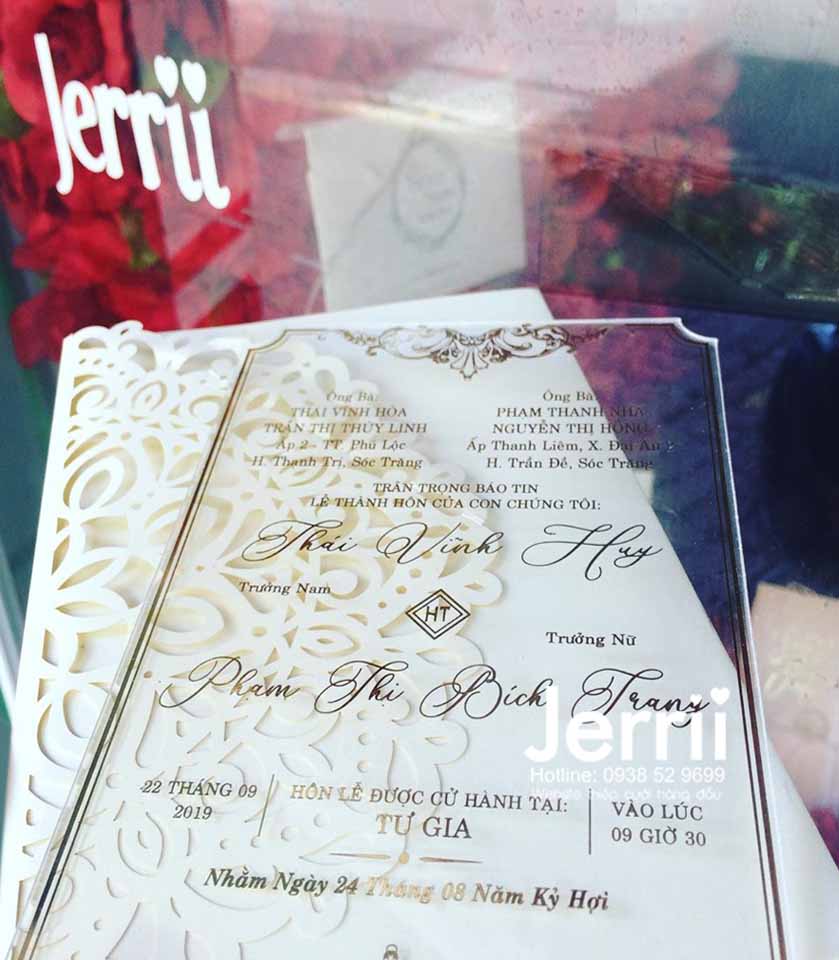 Jerrii
Ông Bà:
THÁI VĨNH HÒA
TRẦN THỊ THÙY LINH
Ấp 2 - TT. Phú Lộc
H. Thanh Trị, Sóc Trăng
Ông Bà:
PHẠM THANH NHÃ
NGUYỄN THỊ HỒNG
Ấp Thanh Liêm, X. Đại Ân 2
H. Trần Đề, Sóc Trăng
TRÂN TRỌNG BÁO TIN
LỄ THÀNH HÔN CỦA CON CHÚNG TÔI:
Thái Vĩnh Huy
Trưởng Nam
HT
Trưởng Nữ
Phạm Thị Bích Trang
Jerrii
Hotline: 0938 52 9699
Website thiệp cưới hàng đầu
22 THÁNG 09
2019
HÔN LỄ ĐƯỢC CỬ HÀNH TẠI:
TƯ GIA
VÀO LÚC
09 GIỜ 30
Nhằm Ngày 24 Tháng 08 Năm Kỷ Hợi